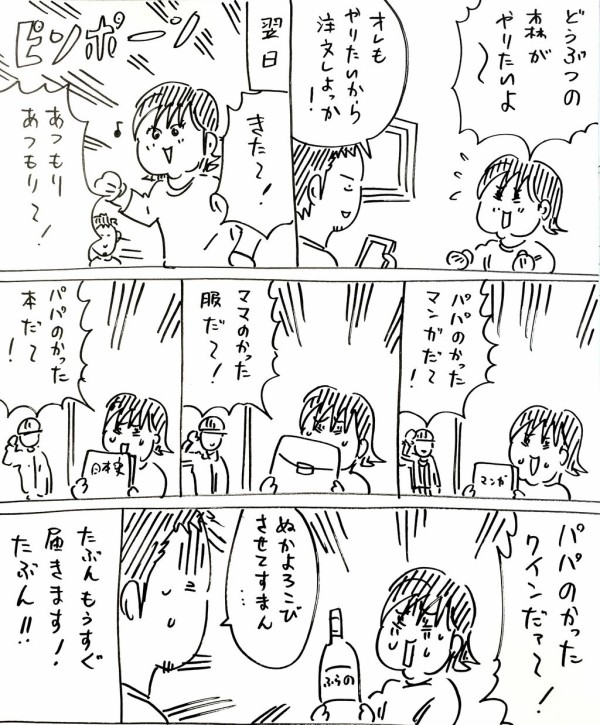 どうぶつの
森が
やりたいよ
〜
オレも
やりたいから
注文しよっか
！
翌日
きた〜！
ピンポーン
♪
あつもり
あつもり〜！
パパのかった
マンガだ〜！
マンガ
ママのかった
服だ〜！
パパのかった
本だ〜！
日本史
パパのかった
ワインだァ〜！
ふらの
ぬかよろこび
させてすまん
…
たぶんもうすぐ
届きます！
たぶん!!